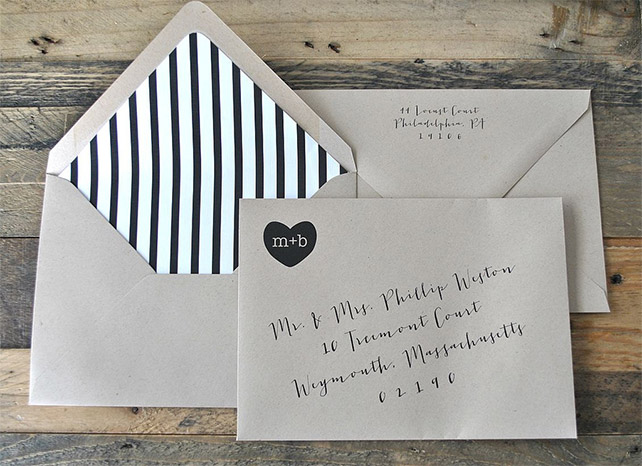 44 Locust Court
Philadelphia, PA
19106
m+b
Mr. & Mrs. Phillip Weston
10 Treemont Court
Weymouth, Massachusetts
02190